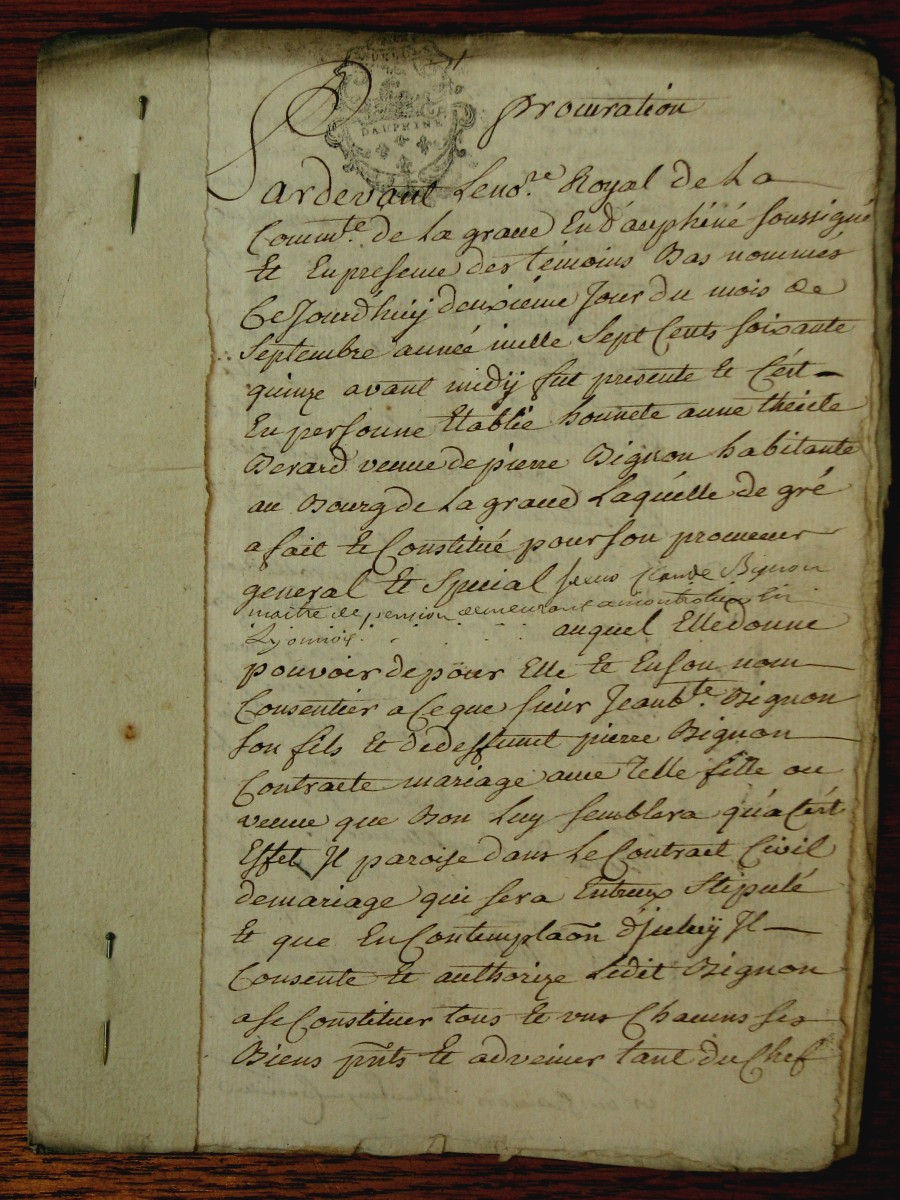 DAUPHINE
procuration
Pardevant Le no.re Royal de La
Comm.te de La grave En dauphiné soussigné
Et En presence des témoins Bas nommés
Ce Jourd'huy deuxième Jour du mois de
Septembre année mille Sept Cents soixante
quinze avant midÿ fut presente et
En personne Etablie honnete anne
Berard veuve de pierre Bignon habitante
au Bourg de La grave Laquelle de gré
a fait et Constitué pour son procureur
general Et Special Bignon
maitre de pension demeurant a En
Lyonnois . . . . . . auquel Elle donne
pouvoir de pour Elle et En son nom
Consentier a Ce que sieur Jean b.te Bignon
son fils Et de deffunct pierre Bignon
Contracte mariage avec telle fille ou
veuve que Bon Luy semblera qu'a Cért
Effet Jl paroise dans Le Contract Civil
de mariage qui sera Entreux Stipulé
Et que En Contemplaõn d'jceluÿ Jl
Consente et authorize Ledit Bignon
a se Constituer tous et uns Chacuns ses
Biens pñts Et advenir tant du Chef